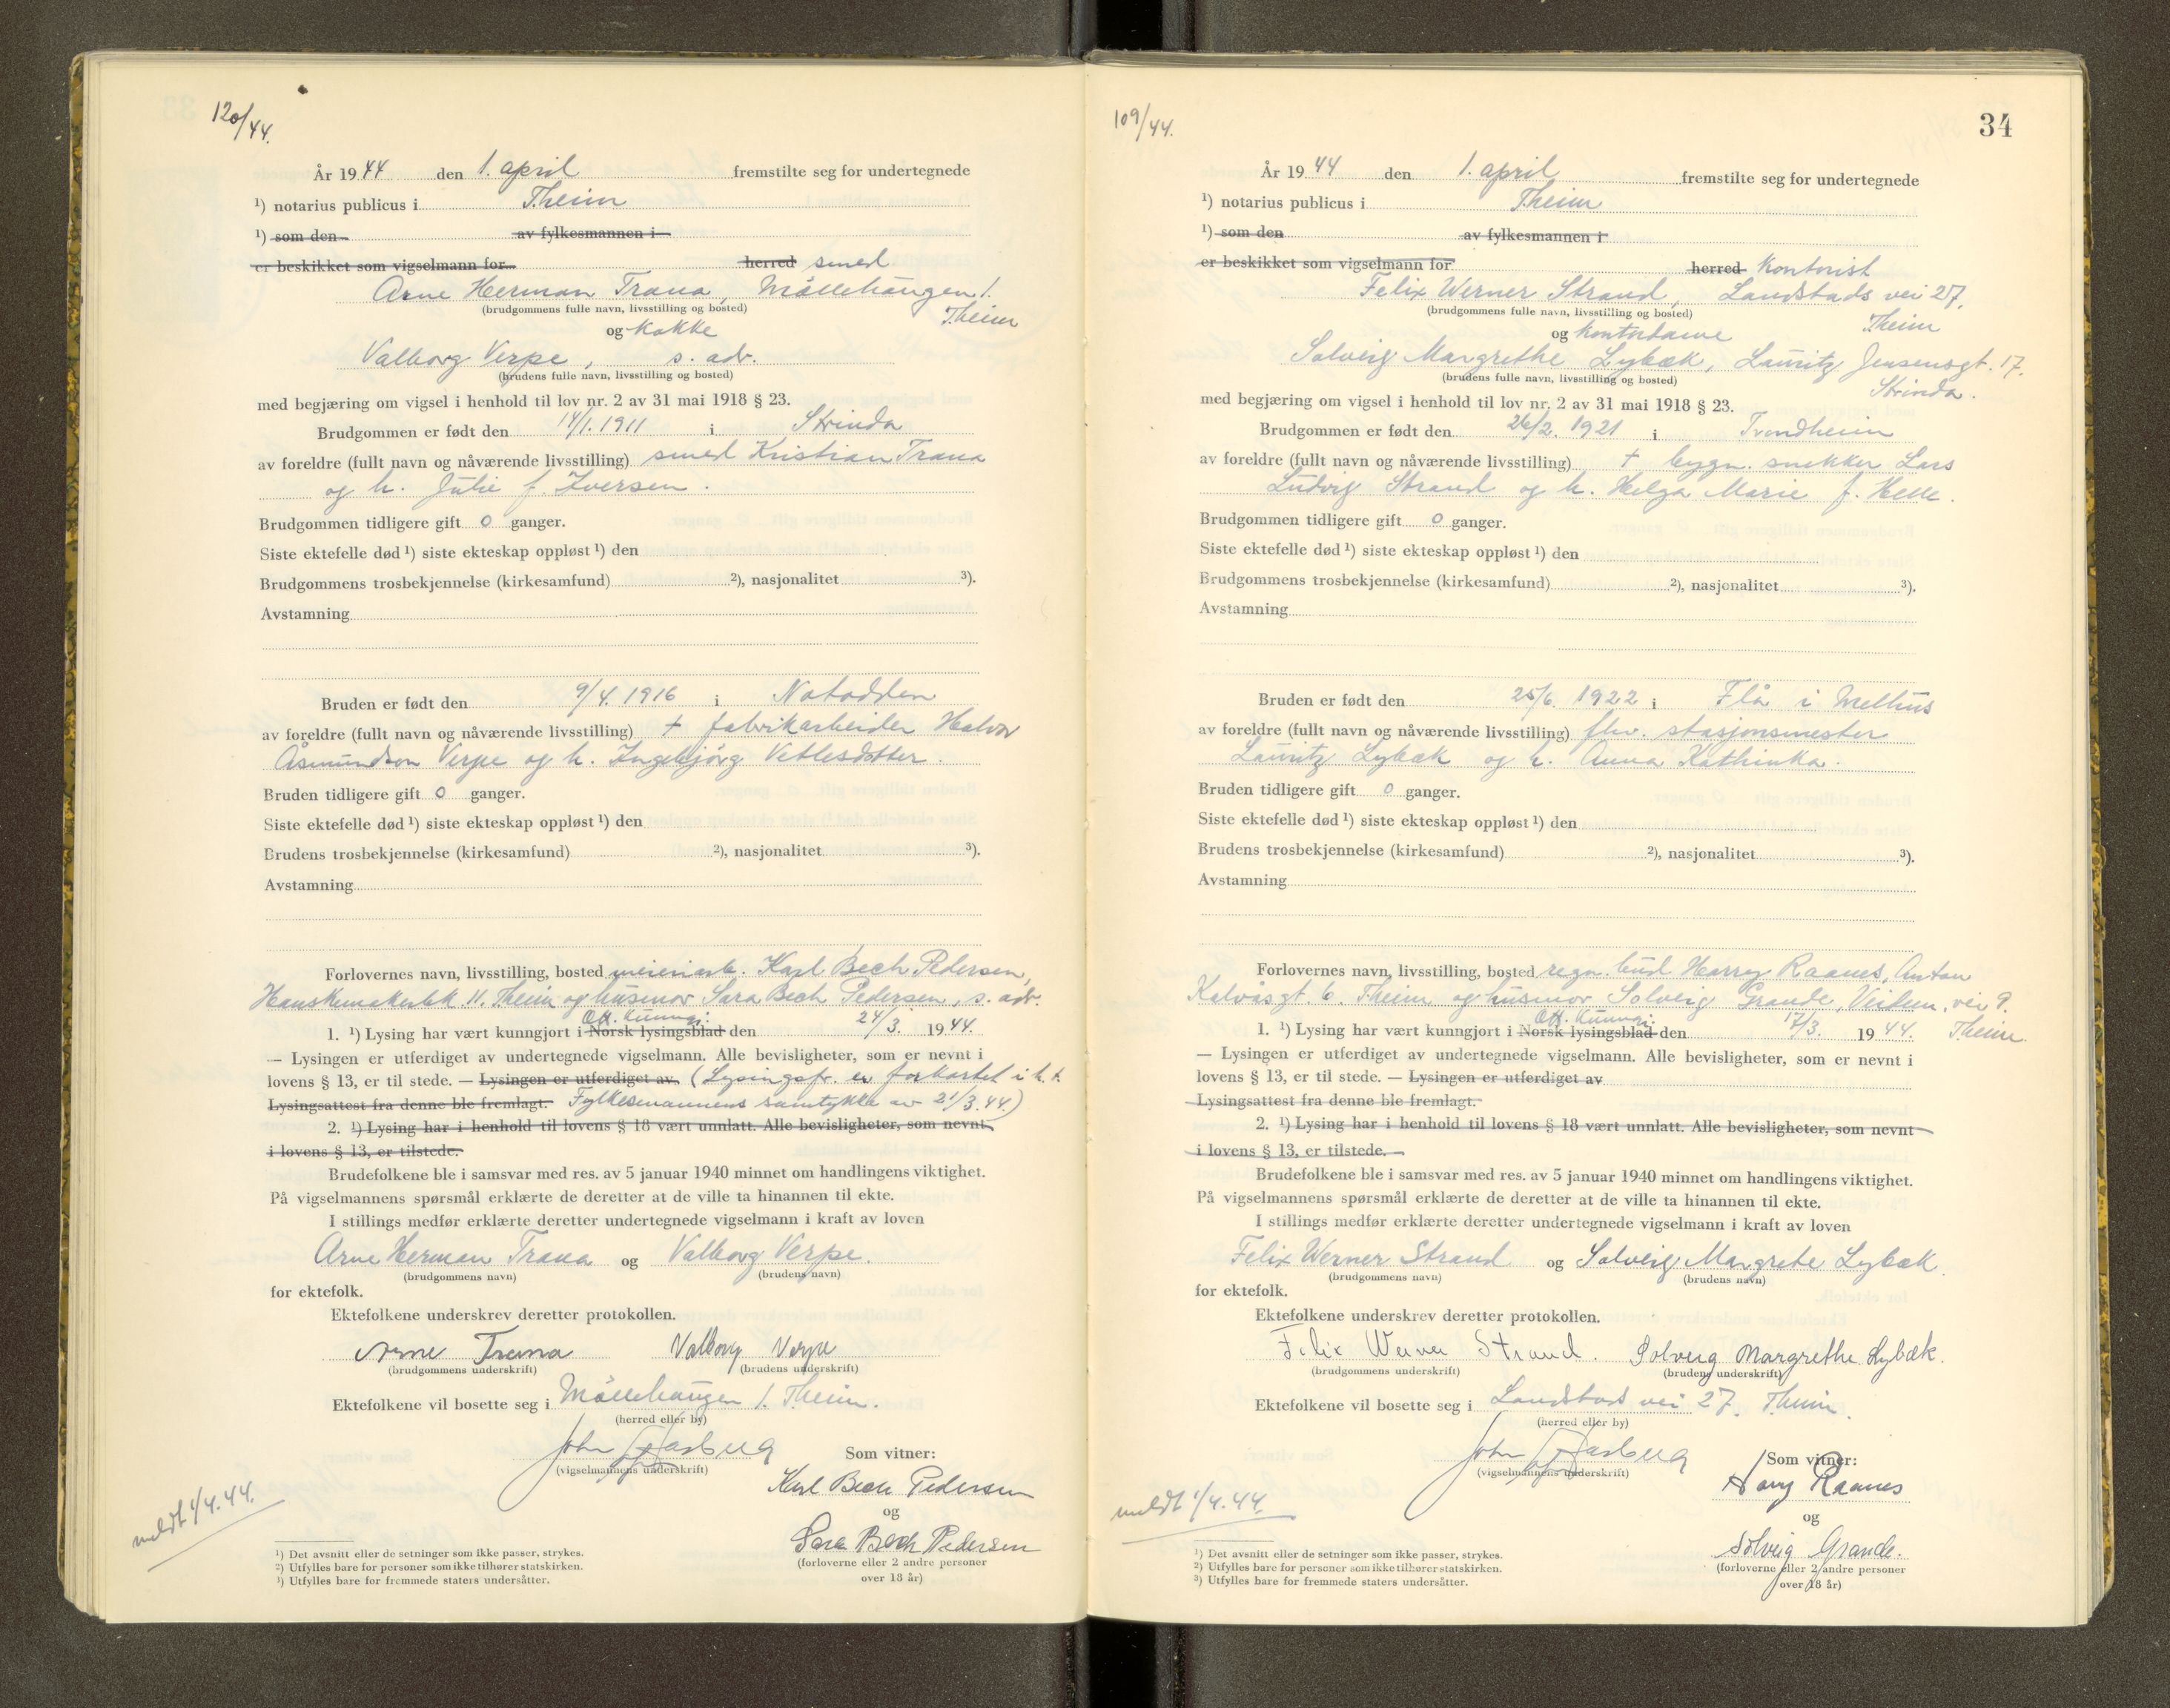 120/44.
År 1944 den 1. april fremstilte seg for undertegnede
¹) notarius publicus i Theim
¹) som den av fylkesmannen i
er beskikket som vigselmann for herred smed
Arne Herman Trana, Möllehaugen 1.
(brudgommens fulle navn, livsstilling og bosted)
Theim
og kokke
Valborg Verpe, s. adr.
(brudens fulle navn, livsstilling og bosted)
med begjæring om vigsel i henhold til lov nr. 2 av 31 mai 1918 § 23.
Brudgommen er født den 14/1. 1911 i Strinda
av foreldre (fullt navn og nåværende livsstilling) smed Kristian Trana
og h. Julie f. Iversen.
Brudgommen tidligere gift 0 ganger.
Siste ektefelle død ¹) siste ekteskap oppløst ¹) den
Brudgommens trosbekjennelse (kirkesamfund) ²), nasjonalitet ³).
Avstamning
Bruden er født den 9/4. 1916 i Notodden
av foreldre (fullt navn og nåværende livsstilling) + fabrikarbeider Halvor
Åsmundson Verpe og h. Ingebjörg Vetlesdotter.
Bruden tidligere gift 0 ganger.
Siste ektefelle død ¹) siste ekteskap oppløst ¹) den
Brudens trosbekjennelse (kirkesamfund) ²), nasjonalitet ³).
Avstamning
Forlovernes navn, livsstilling, bosted meieriarb. Karl Bech Pedersen,
Hanskemakerbk. 11. Theim og husmor Sara Bech Pedersen, s. adr.
Off. kunngj.
1. ¹) Lysing har vært kunngjort i Norsk lysingsblad den 24/3. 1944.
— Lysingen er utferdiget av undertegnede vigselmann. Alle bevisligheter, som er nevnt i
lovens § 13, er til stede. — Lysingen er utferdiget av (Lysingsfr. er forkortet i h. t.
Lysingsattest fra denne ble fremlagt. Fylkesmannens samtykke av 21/3.44.)
2. ¹) Lysing har i henhold til lovens § 18 vært unnlatt. Alle bevisligheter, som nevnt
i lovens § 13, er tilstede.
Brudefolkene ble i samsvar med res. av 5 januar 1940 minnet om handlingens viktighet.
På vigselmannens spørsmål erklærte de deretter at de ville ta hinannen til ekte.
I stillings medfør erklærte deretter undertegnede vigselmann i kraft av loven
Arne Herman Trana og Valborg Verpe.
(brudgommens navn) (brudens navn)
for ektefolk.
Ektefolkene underskrev deretter protokollen.
Arne Trana Valborg Verpe
(brudgommens underskrift) (brudens underskrift)
Ektefolkene vil bosette seg i Möllehaugen 1. Theim.
(herred eller by)
John Aasberg
(vigselmannens underskrift)
Som vitner:
Karl Bech Pedersen
og
Sara Bech Pedersen
(forloverne eller 2 andre personer
over 18 år)
meldt 1/4.44.
¹) Det avsnitt eller de setninger som ikke passer, strykes.
²) Utfylles bare for personer som ikke tilhører statskirken.
³) Utfylles bare for fremmede staters undersåtter.
109/44.
34
År 1944 den 1. april fremstilte seg for undertegnede
¹) notarius publicus i Theim
¹) som den av fylkesmannen i
er beskikket som vigselmann for herred Kontorist
Felix Werner Strand, Landstads vei 27.
(brudgommens fulle navn, livsstilling og bosted)
Theim
og kontordame
Solveig Margrethe Lybæk, Lauritz Jensensgt. 17.
(brudens fulle navn, livsstilling og bosted)
Strinda.
med begjæring om vigsel i henhold til lov nr. 2 av 31 mai 1918 § 23.
Brudgommen er født den 26/2. 1921 i Trondheim
av foreldre (fullt navn og nåværende livsstilling) + bygn. snekker Lars
Ludvig Strand og h. Helga Marie f. Helle.
Brudgommen tidligere gift 0 ganger.
Siste ektefelle død ¹) siste ekteskap oppløst ¹) den
Brudgommens trosbekjennelse (kirkesamfund) ²), nasjonalitet ³).
Avstamning
Bruden er født den 25/6. 1922 i Flå i Melhus
av foreldre (fullt navn og nåværende livsstilling) fhv. stasjonsmester
Lauritz Lybæk og h. Anna Kathinka.
Bruden tidligere gift 0 ganger.
Siste ektefelle død ¹) siste ekteskap oppløst ¹) den
Brudens trosbekjennelse (kirkesamfund) ²), nasjonalitet ³).
Avstamning
Forlovernes navn, livsstilling, bosted regn. bud Harry Raanes, Anton
Kalvåsgt. 6. Theim og husmor Solveig Grande, vei 9.
Off. kunngj.
1. ¹) Lysing har vært kunngjort i Norsk lysingsblad den 17/3. 1944. Theim.
— Lysingen er utferdiget av undertegnede vigselmann. Alle bevisligheter, som er nevnt i
lovens § 13, er til stede. — Lysingen er utferdiget av
Lysingsattest fra denne ble fremlagt.
2. ¹) Lysing har i henhold til lovens § 18 vært unnlatt. Alle bevisligheter, som nevnt
i lovens § 13, er tilstede.
Brudefolkene ble i samsvar med res. av 5 januar 1940 minnet om handlingens viktighet.
På vigselmannens spørsmål erklærte de deretter at de ville ta hinannen til ekte.
I stillings medfør erklærte deretter undertegnede vigselmann i kraft av loven
Felix Werner Strand og Solveig Margrete Lybæk.
(brudgommens navn) (brudens navn)
for ektefolk.
Ektefolkene underskrev deretter protokollen.
Felix Werner Strand. Solveig Margrethe Lybæk.
(brudgommens underskrift) (brudens underskrift)
Ektefolkene vil bosette seg i Landstads vei 27. Theim.
(herred eller by)
John Aasberg
(vigselmannens underskrift)
Som vitner:
Harry Raanes
og
Solveig Grande.
(forloverne eller 2 andre personer
over 18 år)
meldt 1/4.44.
¹) Det avsnitt eller de setninger som ikke passer, strykes.
²) Utfylles bare for personer som ikke tilhører statskirken.
³) Utfylles bare for fremmede staters undersåtter.